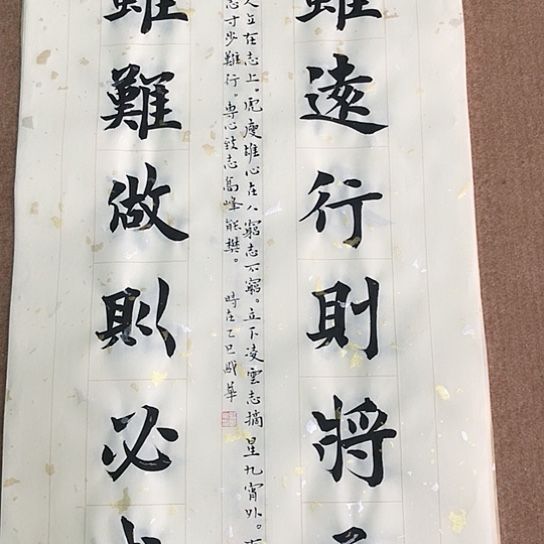 雖遠行則將
人立在志上。虎瘦雄心在人窮志不窮。立下凌雲志摘星九霄外。
志寸步難行。專心致志高峰能攀。 時在乙巳 華
雖難做則必